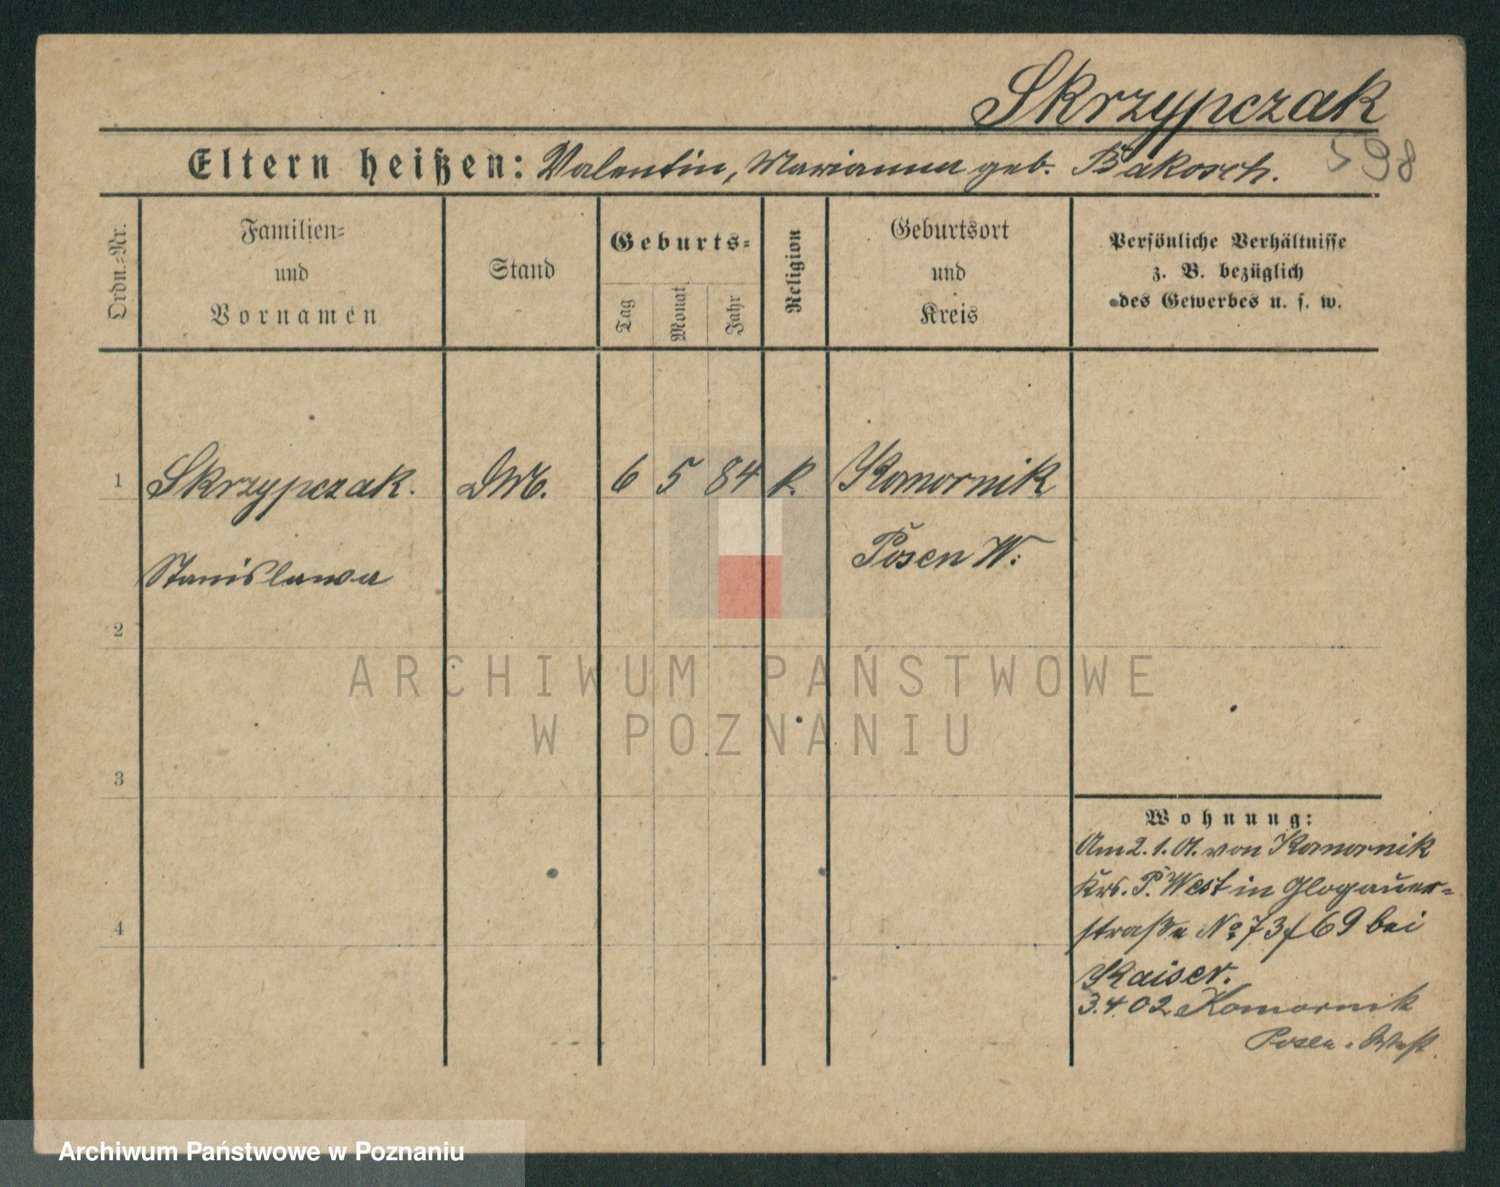 Skrzypczak
598
Eltern heißen: Valentin, Marianna geb. Bakosch.
Ordn.-Nr.
Familien-
und
Vornamen
Stand
Geburts-
Tag
Monat
Jahr
Religion
Geburtsort
und
Kreis
Persönliche Verhältnisse
z. B. bezüglich
des Gewerbes u. s. w.
1 Skrzypczak. DM. 6 5 84 k. Komornik
Stanislawa Posen W.
2
ARCHIWUM PAŃSTWOWE
W POZNANIU
3
Wohnung:
Am 2. 1. 01. von Komornik
Krs. P. West in Glogauer-
straße No 73/69 bei
4
Kaiser.
3.4.02 Komornik
Posen-West.
Archiwum Państwowe w Poznaniu